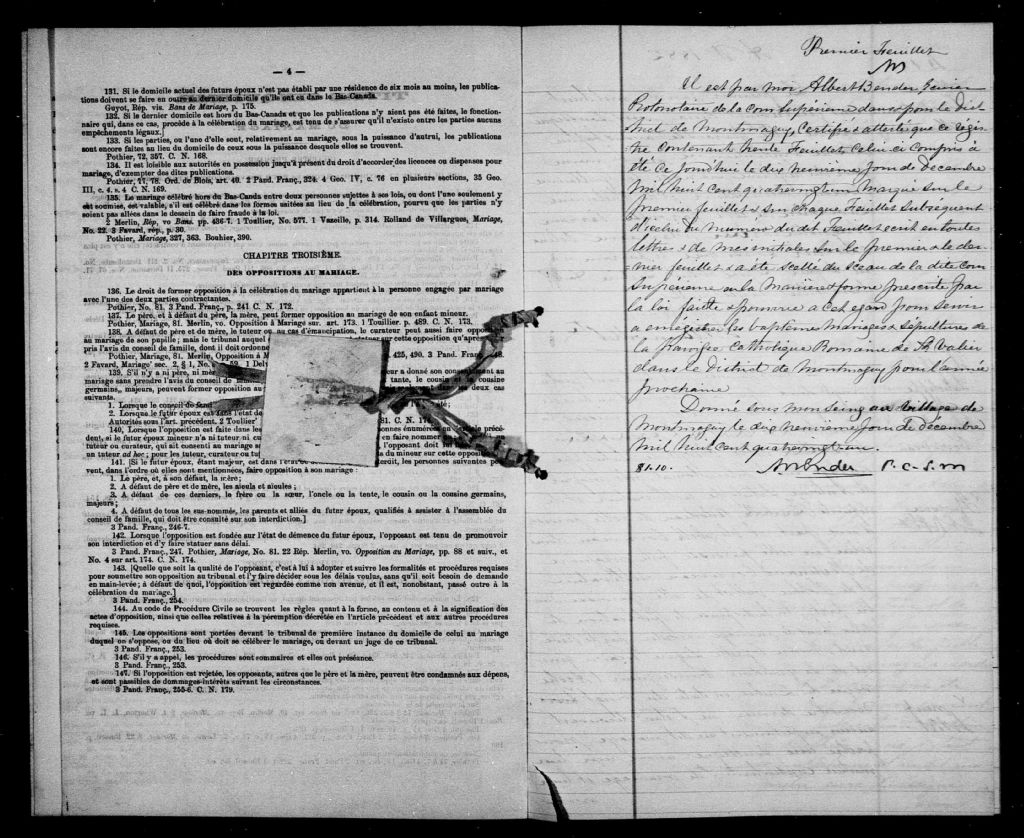 — 4 —
131. Si le domicile actuel des futurs époux n'est pas établi par une résidence de six mois au moins, les publications
doivent se faire en outre au dernier domicile qu'ils ont eu dans le Bas-Canada.
Guyot, Rép. vis. Bans de Mariage, p. 175.
132. Si le dernier domicile est hors du Bas-Canada et que les publications n'y aient pas été faites, le fonctionnaire
qui, dans ce cas, procède à la célébration du mariage, est tenu de s'assurer qu'il n'existe entre les parties aucuns
empêchements légaux.]
133. Si les parties, ou l'une d'elles, sont, relativement au mariage, sous la puissance d'autrui, les publications
sont encore faites au lieu du domicile de ceux sous la puissance desquels elles se trouvent.
Pothier, 72, 357. C. N. 168.
134. Il est loisible aux autorités en possession jusqu'à présent du droit d'accorder des licences ou dispenses pour
mariage, d'exempter des dites publications.
Pothier, 77, 78. Ord. de Blois, art. 40. 2 Pand. Franç., 324. 4 Geo. IV, c. 76 en plusieurs sections, 35 Geo.
III, c. 4. s. 4 C. N. 169.
135. Le mariage célébré hors du Bas-Canada entre deux personnes sujettes à ses lois, ou dont l'une seulement y
est soumise, est valable, s'il est célébré dans les formes usitées au lieu de la célébration, pourvu que les parties n'y
soient pas allées dans le dessein de faire fraude à la loi.
2 Merlin, Rép, vo Bans. pp. 436-7. 1 Toullier, No. 577. 1 Vazeille, p. 314. Rolland de Villargues, Mariage,
No. 22. 3 Favard, rép., p. 30.
Pothier, Mariage, 327, 363. Bouhier, 390.
CHAPITRE TROISIÈME.
DES OPPOSITIONS AU MARIAGE.
136. Le droit de former opposition à la célébration du mariage appartient à la personne engagée par mariage
avec l'une des deux parties contractantes.
Pothier, No. 81. 3 Pand. Franç., p. 241 C. N. 172.
137. Le père, et à défaut du père, la mère, peut former opposition au mariage de son enfant mineur.
Pothier, Mariage, 81. Merlin, vo. Opposition à Mariage sur. art. 173. 1 Toullier. p. 489. C. N. 173.
138. A défaut de père et de mère, le tuteur ou au cas d'émancipation, le curateur peut aussi faire opposition
au mariage de son pupille; mais le tribunal auquel
tuer sur cette opposition qu'après
pris l'avis du conseil de famille, dont il doit ordonner
Pothier, Mariage, 81. Merlin, Opposition à M
425, 490. 3 Pand. Franç.
2 Favard, Mariage sec. 2, § 1, No.
139. S'il n'y a ni père, ni mè
eur a donné son consentement au
mariage sans prendre l'avis du conseil de
tante, le cousin
germains, majeurs, peuvent former opposition au
deux cas
suivants.
1. Lorsque le conseil de
2. Lorsque le futur époux est dans l'état de
Autorités sous l'art. précédent. 2 Toullier
81. C. N.
140. Lorsque l'opposition est faite dans les
sonnes énumérées en l'article précé-
dent, si le futur époux mineur n'a ni tuteur ni cu
en faire nommer
tuteur ou curateur, qui ait consenti au mariage s
du mineur sur cette opposi
un tuteur ad hoc; pour les tuteur, curateur ou tut
141. [Si le futur époux, étant majeur, est dans l'état
les personnes suivantes peu-
vent, dans l'ordre où elles sont mentionnées, faire opposition à son mariage:
1. Le père, et, à son défaut, la mère;
2. A défaut de père et de mère, les aïeuls et aïeules;
3. A défaut de ces derniers, le frère ou la sœur, l'oncle ou la tante, le cousin ou la cousine germains,
majeurs;
4. A défaut de tous les sus-nommés, les parents et alliés du futur époux, qualifiés à assister à l'assemblée du
conseil de famille, qui doit être consulté sur son interdiction.]
3 Pand. Franç., 246-7.
142. Lorsque l'opposition est fondée sur l'état de démence du futur époux, l'opposant est tenu de promouvoir
son interdiction et d'y faire statuer sans délai.
3 Pand. Franç., 247. Pothier, Mariage, No. 81. 22 Rép. Merlin, vo. Opposition au Mariage, pp. 88 et suiv., et
No. 4 sur art. 174. C. N. 174.
143. [Quelle que soit la qualité de l'opposant, c'est à lui à adopter et suivre les formalités et procédures requises
pour soumettre son opposition au tribunal et l'y faire décider sous les délais voulus, sans qu'il soit besoin de demande
en main-levée; à défaut de quoi, l'opposition est regardée comme non avenue, et il est, nonobstant, passé outre à la
célébration du mariage.]
3 Pand. Franç., 254.
144. Au code de Procédure Civile se trouvent les règles quant à la forme, au contenu et à la signification des
actes d'opposition, ainsi que celles relatives à la péremption décrétée en l'article précédent et aux autres procédures
requises.
145. Les oppositions sont portées devant le tribunal de première instance du domicile de celui au mariage
duquel on s'oppose, ou du lieu où doit se célébrer le mariage, ou devant un juge de ce tribunal.
3 Pand. Franç., 253.
146. S'il y a appel, les procédures sont sommaires et elles ont préséance.
3 Pand. Franç., 253.
147. Si l'opposition est rejetée, les opposants, autres que le père et la mère, peuvent être condamnés aux dépens,
et sont passibles de dommages-intérêts suivant les circonstances.
3 Pand. Franç., 255-6. C. N. 179.
Premier Feuillet
Il est par moi Albert Bender Ecuier
Protonotaire de la Cour Supérieure dans & pour le dist
trict de Montmagny, Certifié & attesté que ce régis
tre contenant trente Feuillets celui ci compris a
été ce jourd'hui le dix neuvième jour de decembre
mil huit cent quatrevingt un marqué sur le
premier feuillet & sur chaque Feuillet subséquent
du numéro du dit Feuillet écrit en toutes
lettres & de mes initiales sur le premier & le der
nier feuillet & a été scellé du sceau de la dite cour
Supérieure en la manière & forme prescrite par
la loi faite & pourvue a cet egard pour servir
a enregistrer les baptême mariages & sépultures de
la Paroisse Catholique Romaine de St Valier
dans le district de Montmagny pour l'année
prochaine
Donné sous mon seing au Village de
Montmagny le dix neuvième jour de decembre
mil huit cent quatrevingt un.
81-10. ABender P. C. S. M